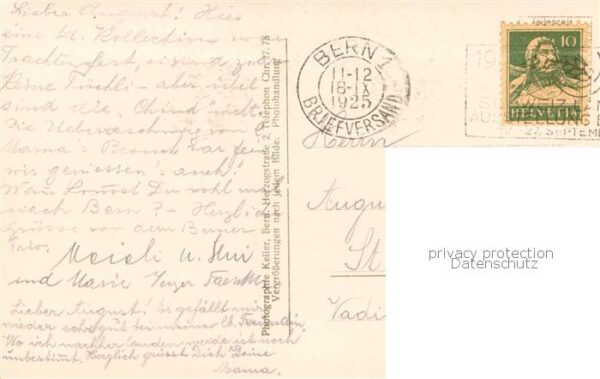 Lieber August! Hier
eine kl. Kollection vom
Trachtenfest, es sind zwar
keine Tüechli – aber übel
sind die "Chind" nicht.
Die Ueberraschung von
Mama Besuch
wir geniessen's auch!
Wann kommst Du wohl mal
nach Bern? – Herzliche
Grüsse von dem Berner
Trio.
Meieli u.
und Marie
Lieber August! Es gefällt mir
wieder sehr gut bei meiner lb. Freundin.
Wo ich nachher landen werde ist noch
unbestimmt. Herzlich grüsst Dich Deine
Mama.
Photographie Keller, Bern, Herzogstraße 2, Telephon Chr. 27.78
Vergrößerungen nach jedem Bilde. Photohandlung
BERN 1
11-12
18-IX
1925
BRIEFVERSAND
10
HELVETIA
AUSSTELLUNG
27. SEPTEMB
Herrn
Augu
St
Vadi
privacy protection
Datenschutz